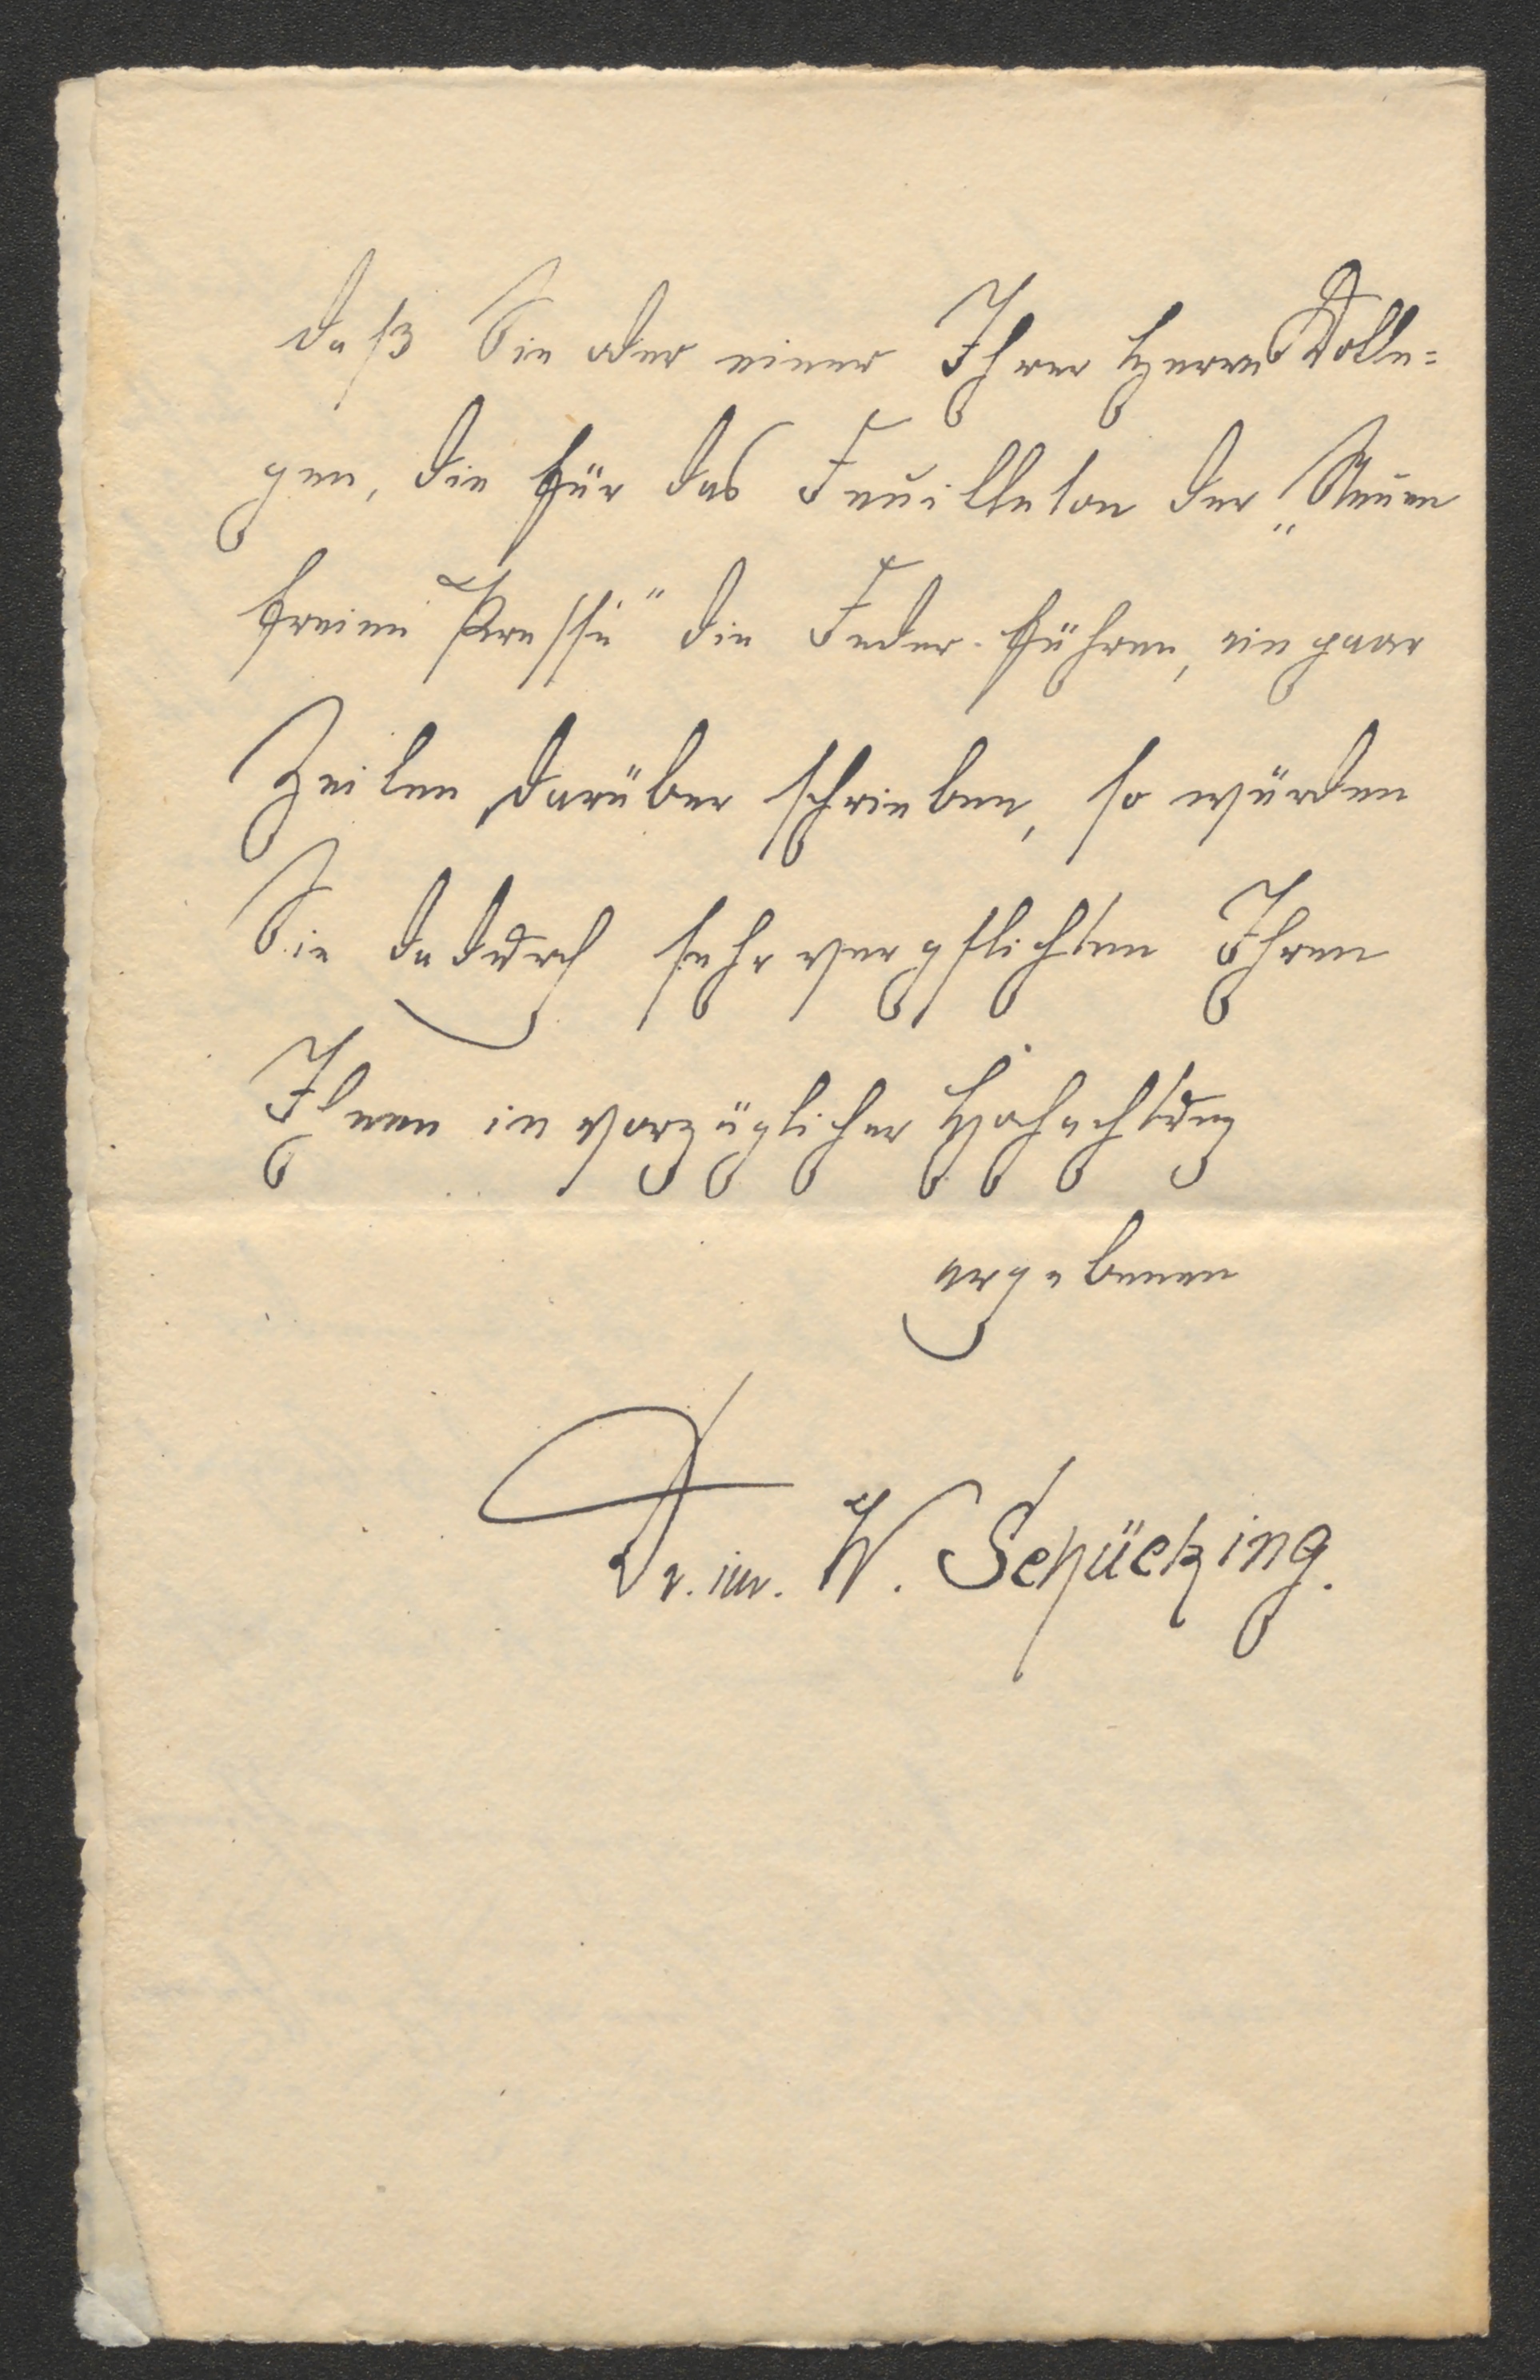 daß Sie oder einer Ihrer Herrn Kolle=
gen, die für das Feuilleton der „Neuen
freien Presse" die Feder führen, ein paar
Zeilen darüber schrieben, so würden
Sie dadurch sehr verpflichten Ihren
Ihnen in vorzüglicher Hochachtung
ergebenen
Dr. iur. W. Schücking.